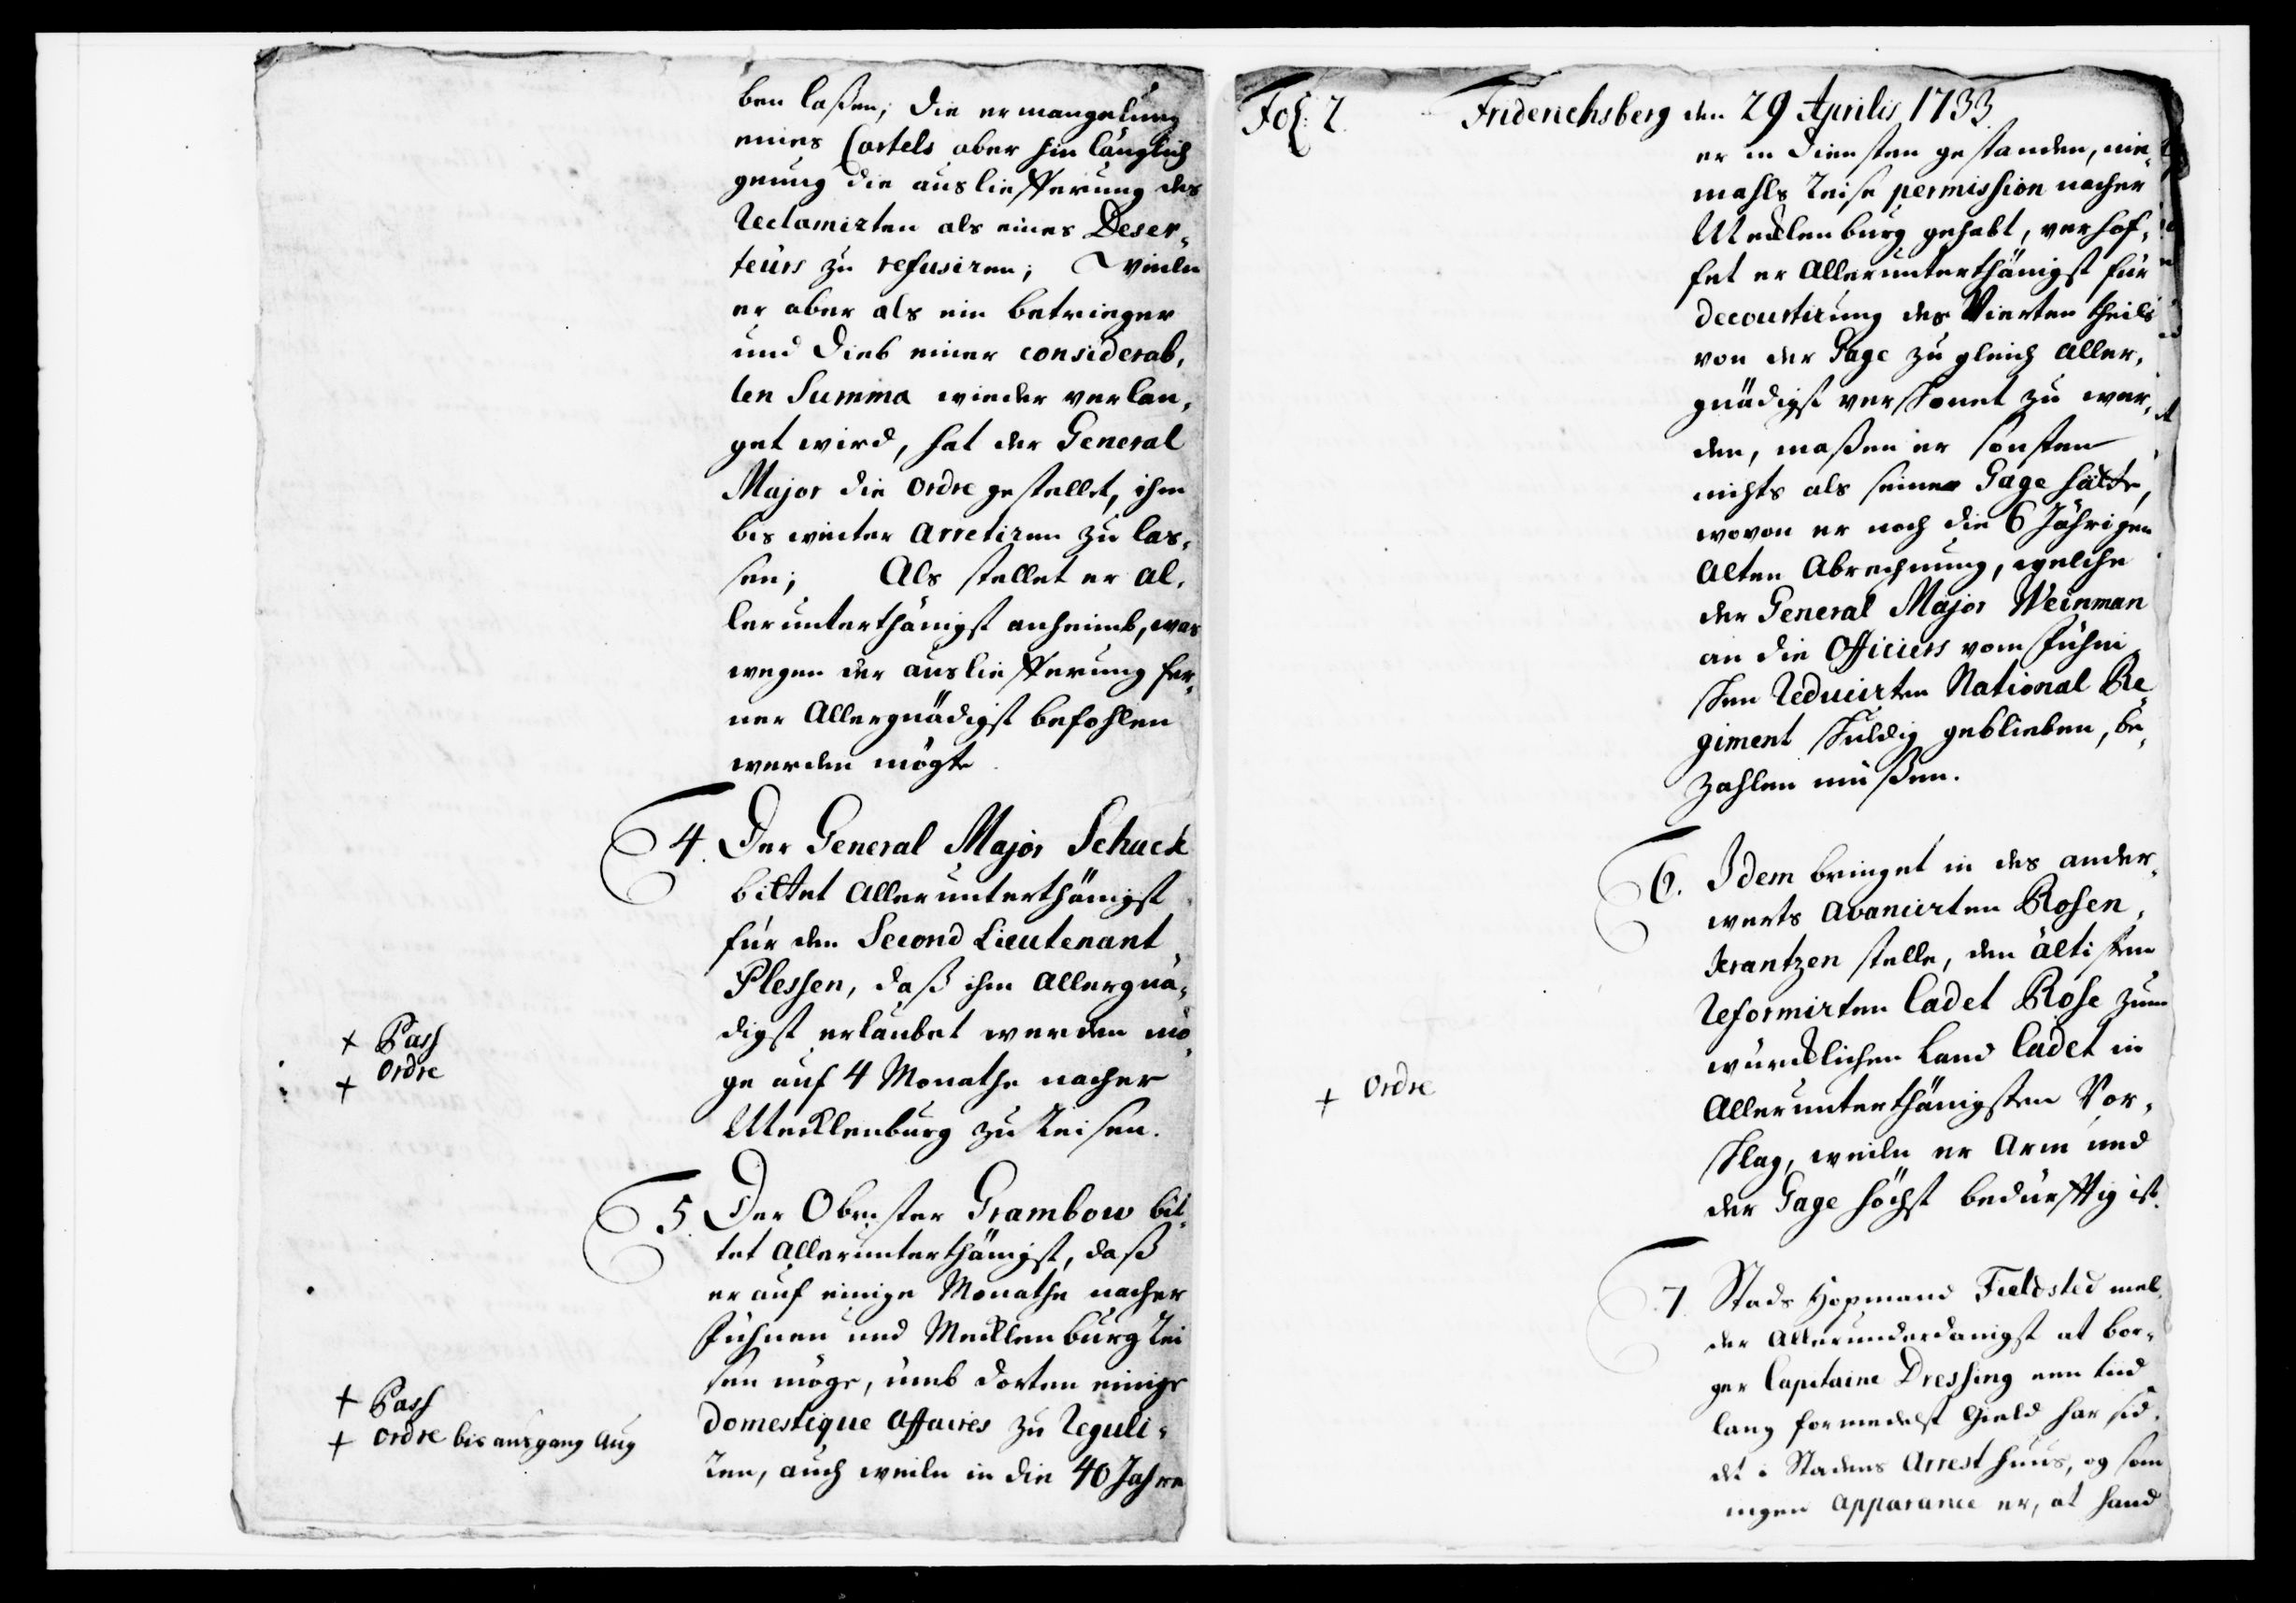 ben laßen; die ermangelung
eines Cartels aber hinlänglich
genung die auslieffterung des
Reclamirten als eines Deser-
teurs zu refusiren; Weiln
er aber als ein betrieger
und Dieb einer considerab-
len Summa wieder verlan-
get wird, hat der General
Major die Ordre gestellet, ihn
bis weiter arretiren zu las-
sen; Als stellet er al-
lerunterthänigst anheimb, was
wegen der auslieffterung fer-
ner Allergnädigst befohlen
werden mögte
4. Der General Major Schack
bittet Allerunterthänigst
für den Second Lieutenant
Plessen, daß ihm Allergnä-
digst erlaubet werden mö-
ge auf 4 Monathe nacher
Mecklenburg zu Reisen.
+ Pass
+ Ordre
5. Der Obrister Grambow bit-
tet Allerunterthänigst, daß
er auf einige Monathe nacher
Fühnen und Mecklenburg Rei
sen möge, umb dorten einige
domestique Affaires zu Reguli-
ren, auch weiln in die 40 Jahre
+ Pass
+ Ordre bis ausgang Aug
Fol: 2. Friderichsberg den 29 Aprilis 1733
er in Diensten gestanden, nie-
mahls Reise permission nacher
Mecklenburg gehabt, verhof-
fet er Allerunterthänigst für
decourtirung des Vierten theils
von der Gage zugleich Aller-
gnädigst verschonet zu wer-
den, maßen er sonsten
nichts als seine Gage hätte,
wovon er noch die 6 Jährigen
Alten Abrechnung, welche
der General Major Weinman
an die Officiers vom Fühni-
schen Reducirten National Re-
giment schuldig geblieben, be-
zahlen müßen.
6. Idem bringet in des ander-
werts avancirten Rosen-
krantzen stelle, den ältisten
Reformirten Cadet Rose zum
würcklichen Land Cadet in
Allerunterthänigsten Vor-
schlag, weiln er Arm und
der Gage höchst bedürfftig ist.
+ Ordre
7. Stads Hopmand Fieldsted mel-
der Allerunderdanigst at bor-
ger Capitaine Dressing enn tiid
lang formedelst Gield har sid-
det i Stadens Arrest huus, og som
ingen apparance er, at hand